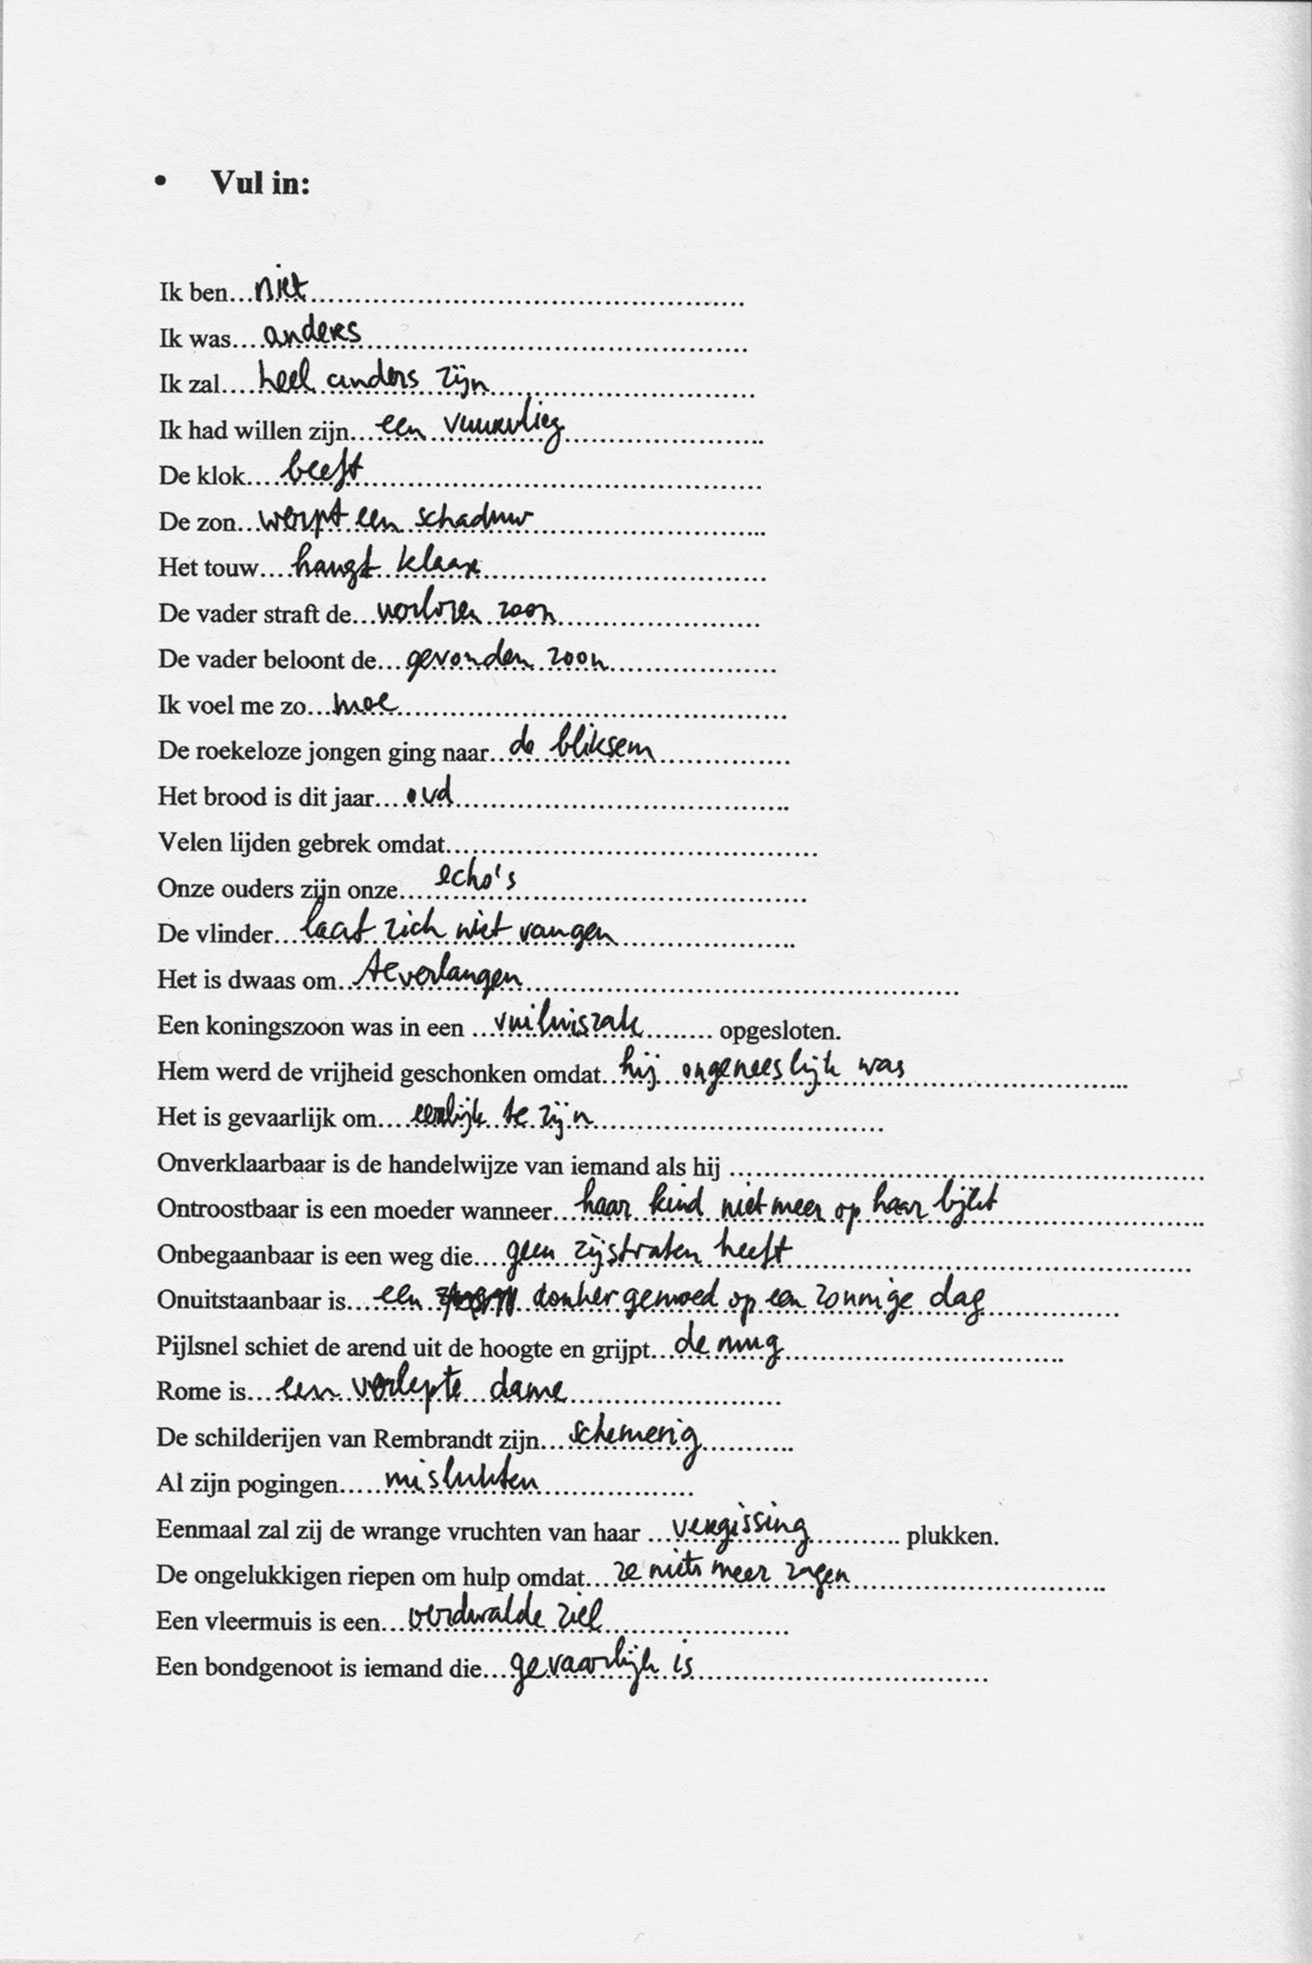 • Vul in:
Ik ben...niet
Ik was....anders
Ik zal....heel anders zijn
Ik had willen zijn...een vuurvlieg
De klok....beeft
De zon...werpt een schaduw
Het touw....hangt klaar
De vader straft de...verloren zoon
De vader beloont de...gevonden zoon
Ik voel me zo...moe
De roekeloze jongen ging naar...de bliksem
Het brood is dit jaar....oud
Velen lijden gebrek omdat...
Onze ouders zijn onze....echo's
De vlinder...laat zich niet vangen
Het is dwaas om...te verlangen
Een koningszoon was in een ...vuilniszak........ opgesloten.
Hem werd de vrijheid geschonken omdat...hij ongeneeslijk was
Het is gevaarlijk om....eerlijk te zijn
Onverklaarbaar is de handelwijze van iemand als hij ...
Ontroostbaar is een moeder wanneer...haar kind niet meer op haar lijkt
Onbegaanbaar is een weg die....geen zijstraten heeft
Onuitstaanbaar is....een donker gemoed op een zonnige dag
Pijlsnel schiet de arend uit de hoogte en grijpt...de mug
Rome is....een verlepte dame
De schilderijen van Rembrandt zijn...schemerig
Al zijn pogingen.....mislukten
Eenmaal zal zij de wrange vruchten van haar ...vergissing.......... plukken.
De ongelukkigen riepen om hulp omdat...ze niets meer zagen
Een vleermuis is een...verdwaalde ziel
Een bondgenoot is iemand die....gevaarlijk is